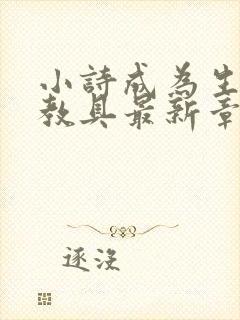 小詩成為生
教具最新章
逐沒